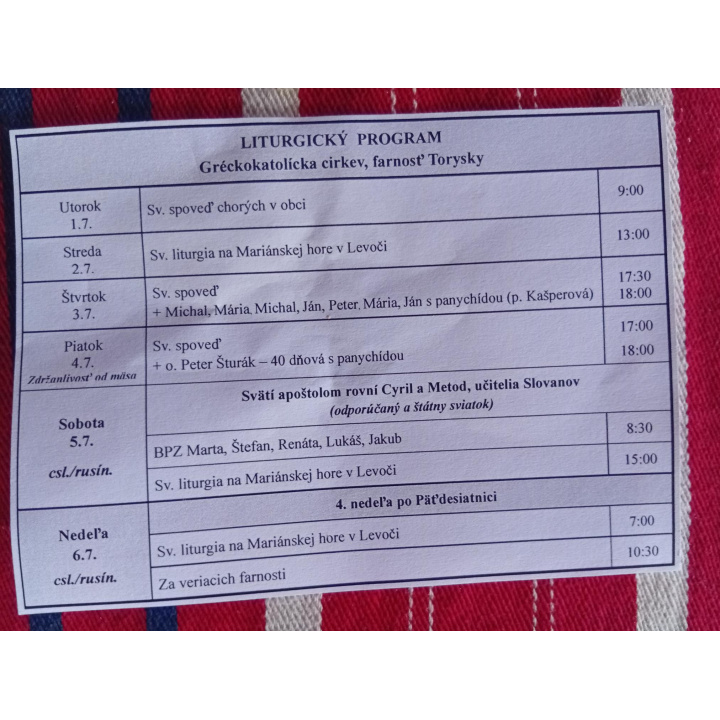 LITURGICKÝ PROGRAM
Gréckokatolícka cirkev, farnosť Torysky
Utorok
1.7.
Sv. spoveď chorých v obci
9:00
Streda
2.7.
Sv. liturgia na Mariánskej hore v Levoči
13:00
Štvrtok
3.7.
Sv. spoveď
17:30
+ Michal, Mária, Michal, Ján, Peter, Mária, Ján s panychídou (p. Kašperová)
18:00
Piatok
4.7.
Zdržanlivosť od mäsa
Sv. spoveď
17:00
+ o. Peter Šturák – 40 dňová s panychídou
18:00
Sobota
5.7.
csl./rusín.
Svätí apoštolom rovní Cyril a Metod, učitelia Slovanov
(odporúčaný a štátny sviatok)
BPZ Marta, Štefan, Renáta, Lukáš, Jakub
8:30
Sv. liturgia na Mariánskej hore v Levoči
15:00
Nedeľa
6.7.
csl./rusín.
4. nedeľa po Päťdesiatnici
Sv. liturgia na Mariánskej hore v Levoči
7:00
Za veriacich farnosti
10:30